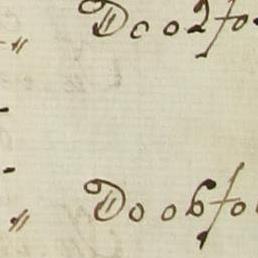 „ Do o2 fo
„ Do o6 fo